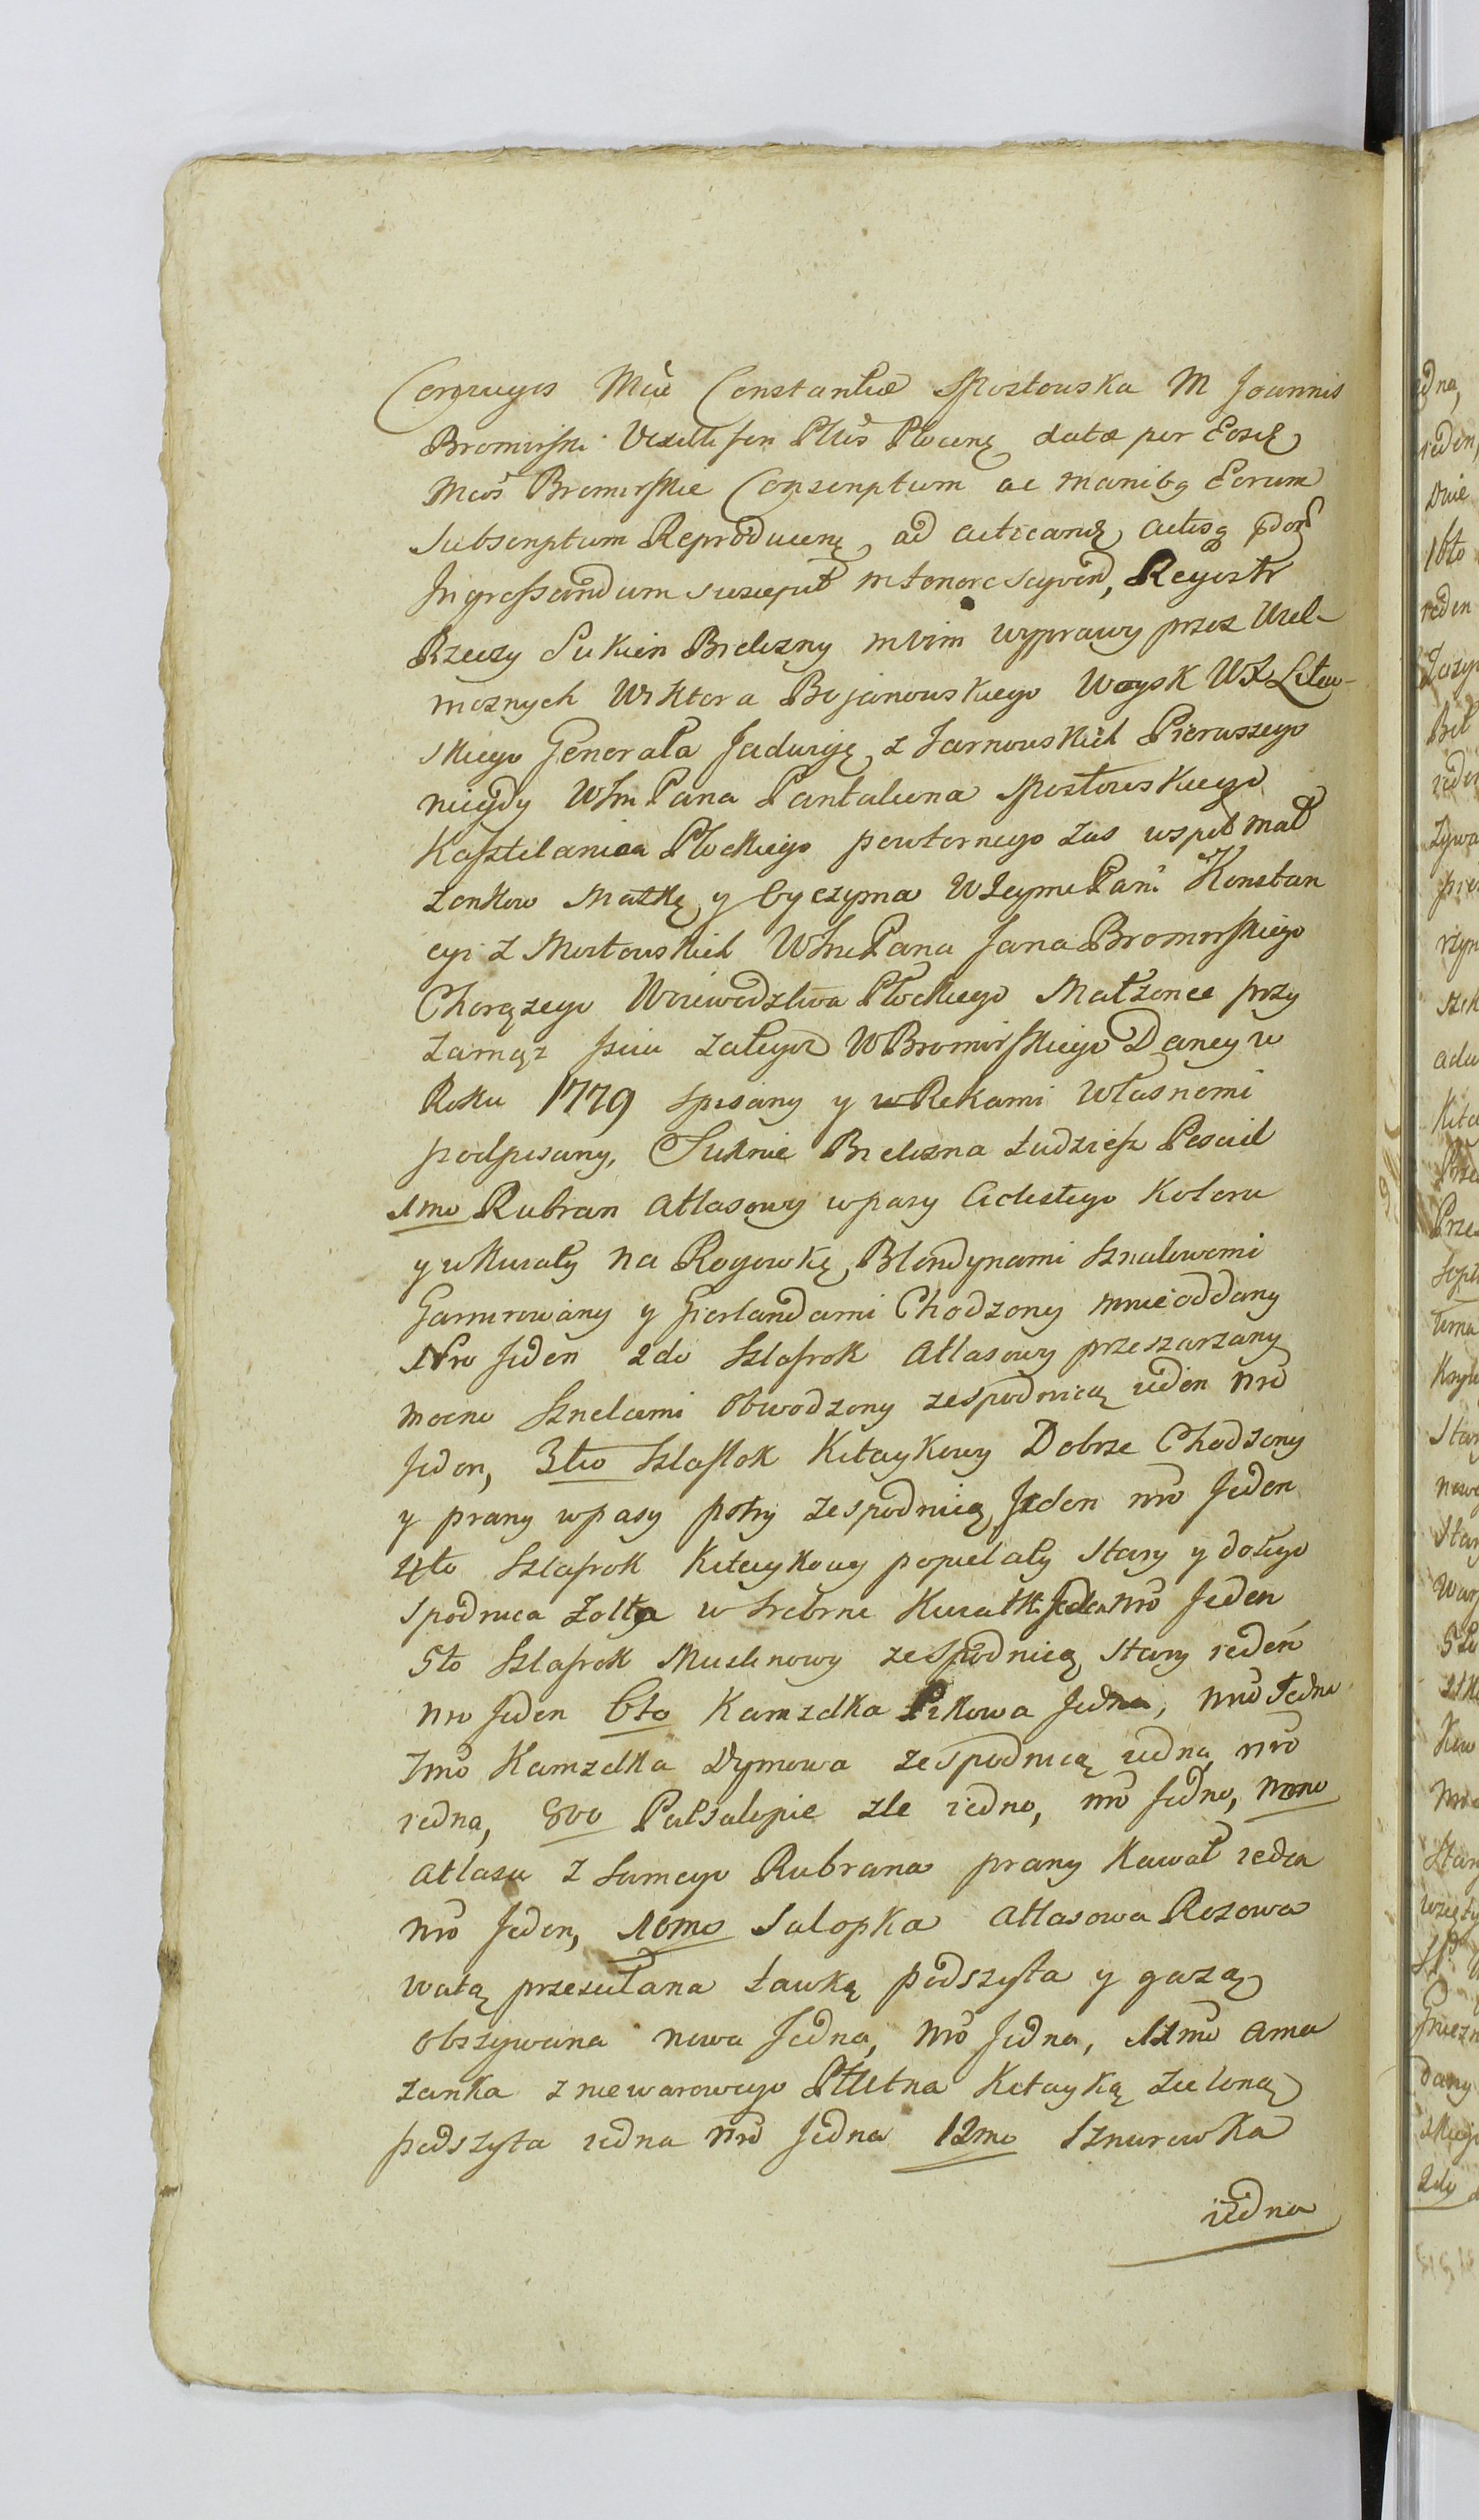 Conjugis Mciæ Constantiæ Mostowska M Joannis
Bromirski Vexilliferi Pltūs Plocenę datæ per Eosdę
Mcos Bromirskie Conscriptum ac manibg Eorum
Subscriptum Reproducenę ad acticandę actisq
Ingrossandum suscepit m tenore seqven, Regestr
Rzeczy Sukien Bielizny mbim wyprawy przez Wiel-
moznych Wiktora Bojanowskiego Woysk WX Litew-
skiego Generała Jadwigę z Tarnowskich Pierwszego
niegdy WIm Pana Pantaleona Mostowskiego
Kasztelanica Płockiego powtornego zas wspoł Mał
zonkow Matkę y Oyczyma WJeyme Pani Konstan
cyi z Mostowskich WIm Pana Jana Bromirskiego
Chorązego Woiewodztwa Płockiego Małzonce przy
zamąz sciu za tegoż W Bromirskiego Daney w
Roku 1779 spisany y w Rekami Własnemi
podpisany, Suknie Bielizna tudziesz Posciel
1mo Rubran Atłasowy wpasy Celestego Koloru
y wkwiaty na Rogowkę Blondynami Sznelowemi
Garnirowany y Gierlandami Chodzony mnie oddany
Nro Jeden 2do Szlafrok Atłasowy przeszarzany
mocno Sznelami Obwodzony zespodnicą ieden nro
Jeden, 3tio Szlafrok Kitaykowy Dobrze Chodzony
y prany wpasy pstry zespodnicą Jeden nro Jeden
4to Szlafrok Kitaykowy popielaty Stary y do tego
Spodnica Zołta w Srebrne Kwiatki Jeden nro Jeden
5to Szlafrok Muslinowy ze Spodnicą Stary ieden
nro Jeden 6to Kamzelka Pikowa Jedna, nro Jedna
7mo Kamzelka Dymowa zespodnicą iedna nro
iedna, 8vo Pulsalopie złe iedno, nro Jedno, nono
Atłasu z Samego Rubrana prany Kawał ieden
nro Jeden, 10mo Salopka Atłasowa Rozowa
watą przesułana Ławką podszyta y gazą
Obszywana nowa Jedna, nro Jedna, 11mo Ama
zanka zniewarowego Płutna Kitayką Zieloną
podszyta iedna nro Jedna 12mo Sznurowka
iedna